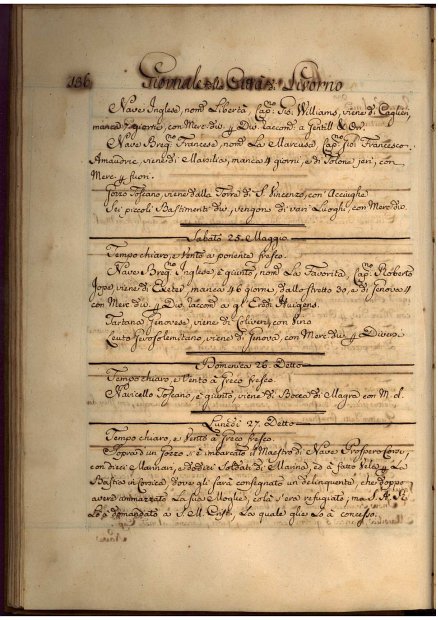 136 Giornale di Città di Livorno
Nave Inglese, nom.ᵗᵃ Libertà Cap.ⁿᵒ Williams, viene di
manca giorni, con Merc. div. 4 Div. raccom. a Gentill & Orr.
Nave Brig.ⁿᵒ Francese, nom.ᵗᵃ La Marcusa, Cap.ⁿᵒ Gio. Francesco
Amaudric, viene di Marsilia, manca 4 giorni, e di Tolone jeri, con
Merc. 4 fuori.
Gozzo Toscano, viene dalla Torre di S. Vincenzo, con Acciughe
Sei piccoli Bastimenti div. vengono di vari Luoghi, con Merc. div.
Sabato 25. Maggio
Tempo chiaro, e Vento a ponente fresco.
Nave Brig.ⁿᵒ Inglese, è giunto, nom.ᵗᵒ La Favorita, Cap.ⁿᵒ Roberto
Jope, viene di Exeter, manca 46 giorni, dallo stretto 30, e di Genova 4
con Merc. div. 4 Div. raccom. a gl' Eredi Huigens.
Tartana Genovese, viene di Coliveri, con Vino
Leuto Gerosolimitano, viene di Genova, con Merc. div. 4 Diversi
Domenica 26. Detto
Tempo chiaro, e Vento à Greco fresco.
Navicello Toscano, è giunto, viene di Bocca di Magra con M. d.
Lunedì 27. Detto
Tempo chiaro, e Vento à Greco fresco.
Sopra un Gozzo s' è imbarcato il Maestro di Nave Prospero Cons,
con dieci Marinari, e dodici Soldati di Marina, ed à fatto Vela 4 La
Bastia in Corsica dove gli sarà consegnato un delinquente, che doppo
avere ammazzato La sua Moglie, colà s' era refugiato, ma S. A. R.
lo à domandato à S. M. Crist., La quale glie Lo à concesso.